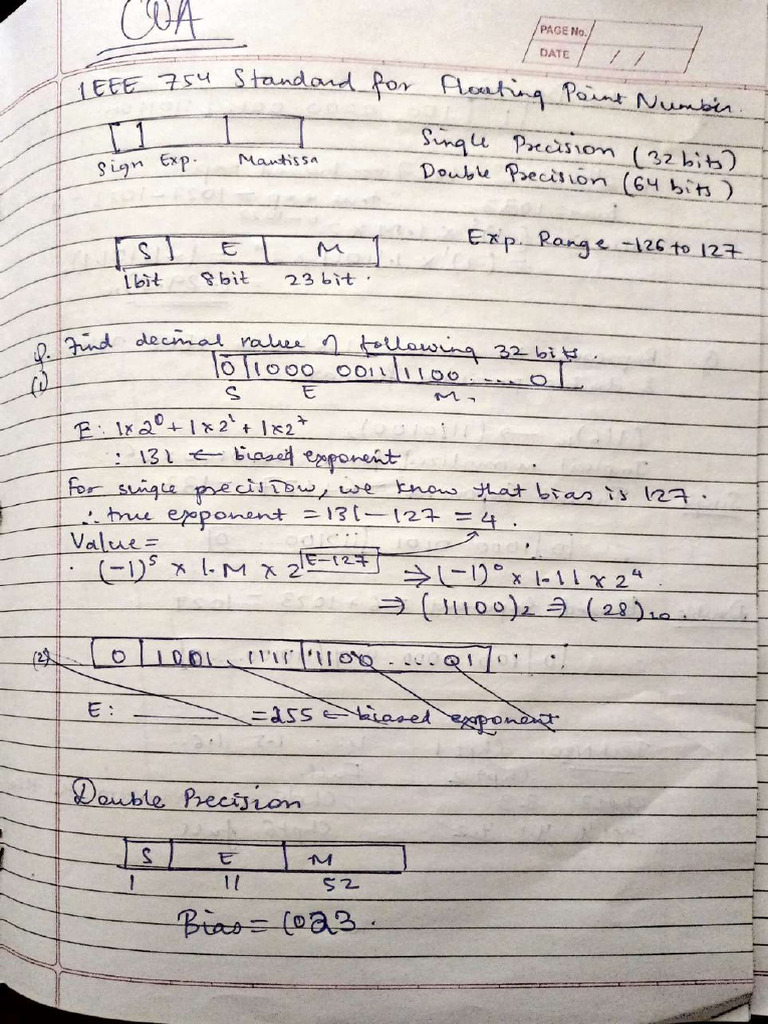 COA
PAGE No.
DATE / /
IEEE 754 Standard for Floating Point Number.
Sign Exp. Mantissa
Single Precision (32 bits)
Double Precision (64 bits)
S E M
1bit 8bit 23 bit.
Exp. Range -126 to 127
Q. Find decimal value of following 32 bits.
(1) 0 1000 0011 1100.....0
S E M
E: 1x2⁰ + 1x2¹ + 1x2⁷
: 131 ← biased exponent
For single precision, we know that bias is 127.
∴ true exponent = 131 - 127 = 4.
Value =
(-1)ˢ x 1.M x 2^E-127 ⇒ (-1)⁰ x 1.11 x 2⁴
⇒ (11100)₂ ⇒ (28)₁₀.
(2) 0 1001 1111 1100....01
E: ______ = 255 ← biased exponent
Double Precision
S E M
1 11 52
Bias = 1023.